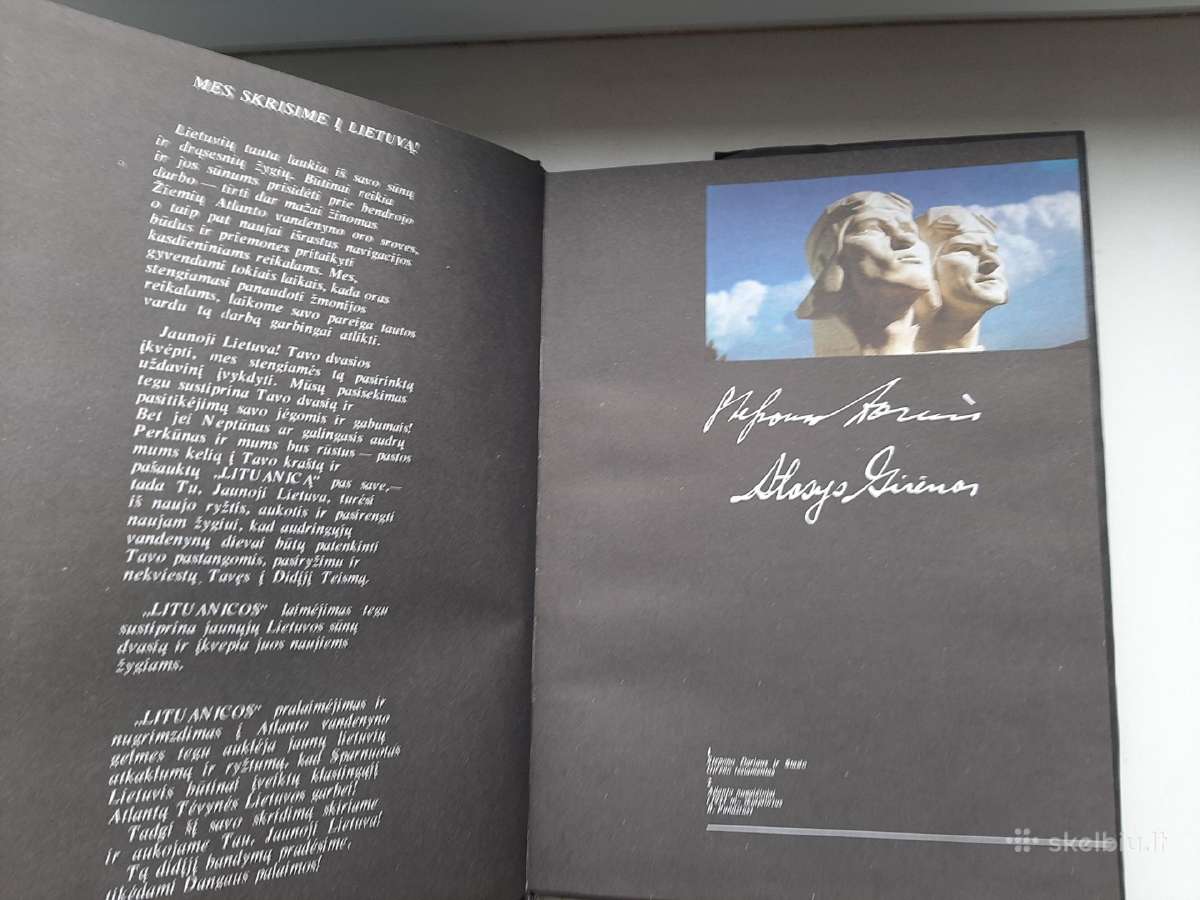 MES SKRISIME Į LIETUVĄ!
Lietuvių tauta laukia iš savo sūnų
ir drąsesnių žygių. Būtinai reikia
ir jos sūnums prisidėti prie bendrojo
darbo — tirti dar mažai žinomas
Žiemių Atlanto vandenyno oro sroves,
o taip pat naujai išrastus navigacijos
būdus ir priemones pritaikyti
kasdieniniams reikalams. Mes,
gyvendami tokiais laikais, kada oras
stengiamasi panaudoti žmonijos
reikalams, laikome savo pareiga tautos
vardu tą darbą garbingai atlikti.
Jaunoji Lietuva! Tavo dvasios
įkvėpti, mes stengiamės tą pasirinktą
uždavinį įvykdyti. Mūsų pasisekimas
tegu sustiprina Tavo dvasią ir
pasitikėjimą savo jėgomis ir gabumais!
Bet jei Neptūnas ar galingasis audrų
Perkūnas ir mums bus rūstus — pastos
mums kelią į Tavo kraštą ir
pašauktų „LITUANICĄ“ pas save,—
tada Tu, Jaunoji Lietuva, turėsi
iš naujo ryžtis, aukotis ir pasirengti
naujam žygiui, kad audringųjų
vandenynų dievai būtų patenkinti
Tavo pastangomis, pasiryžimu ir
nekviestų Tavęs į Didįjį Teismą.
„LITUANICOS“ laimėjimas tegu
sustiprina jaunųjų Lietuvos sūnų
dvasią ir įkvepia juos naujiems
žygiams.
„LITUANICOS“ pralaimėjimas ir
nugrimzdimas į Atlanto vandenyno
gelmes tegu auklėja jaunų lietuvių
atkaklumą ir ryžtumą, kad Sparnuotas
Lietuvis būtinai įveiktų klastingąjį
Atlantą Tėvynės Lietuvos garbei!
Tadgi šį savo skridimą skiriame
ir aukojame Tau, Jaunoji Lietuva!
Tą didįjį bandymą pradėsime,
tikėdami Dangaus palaimos!
Stasys Girėnas
skelbiu.lt